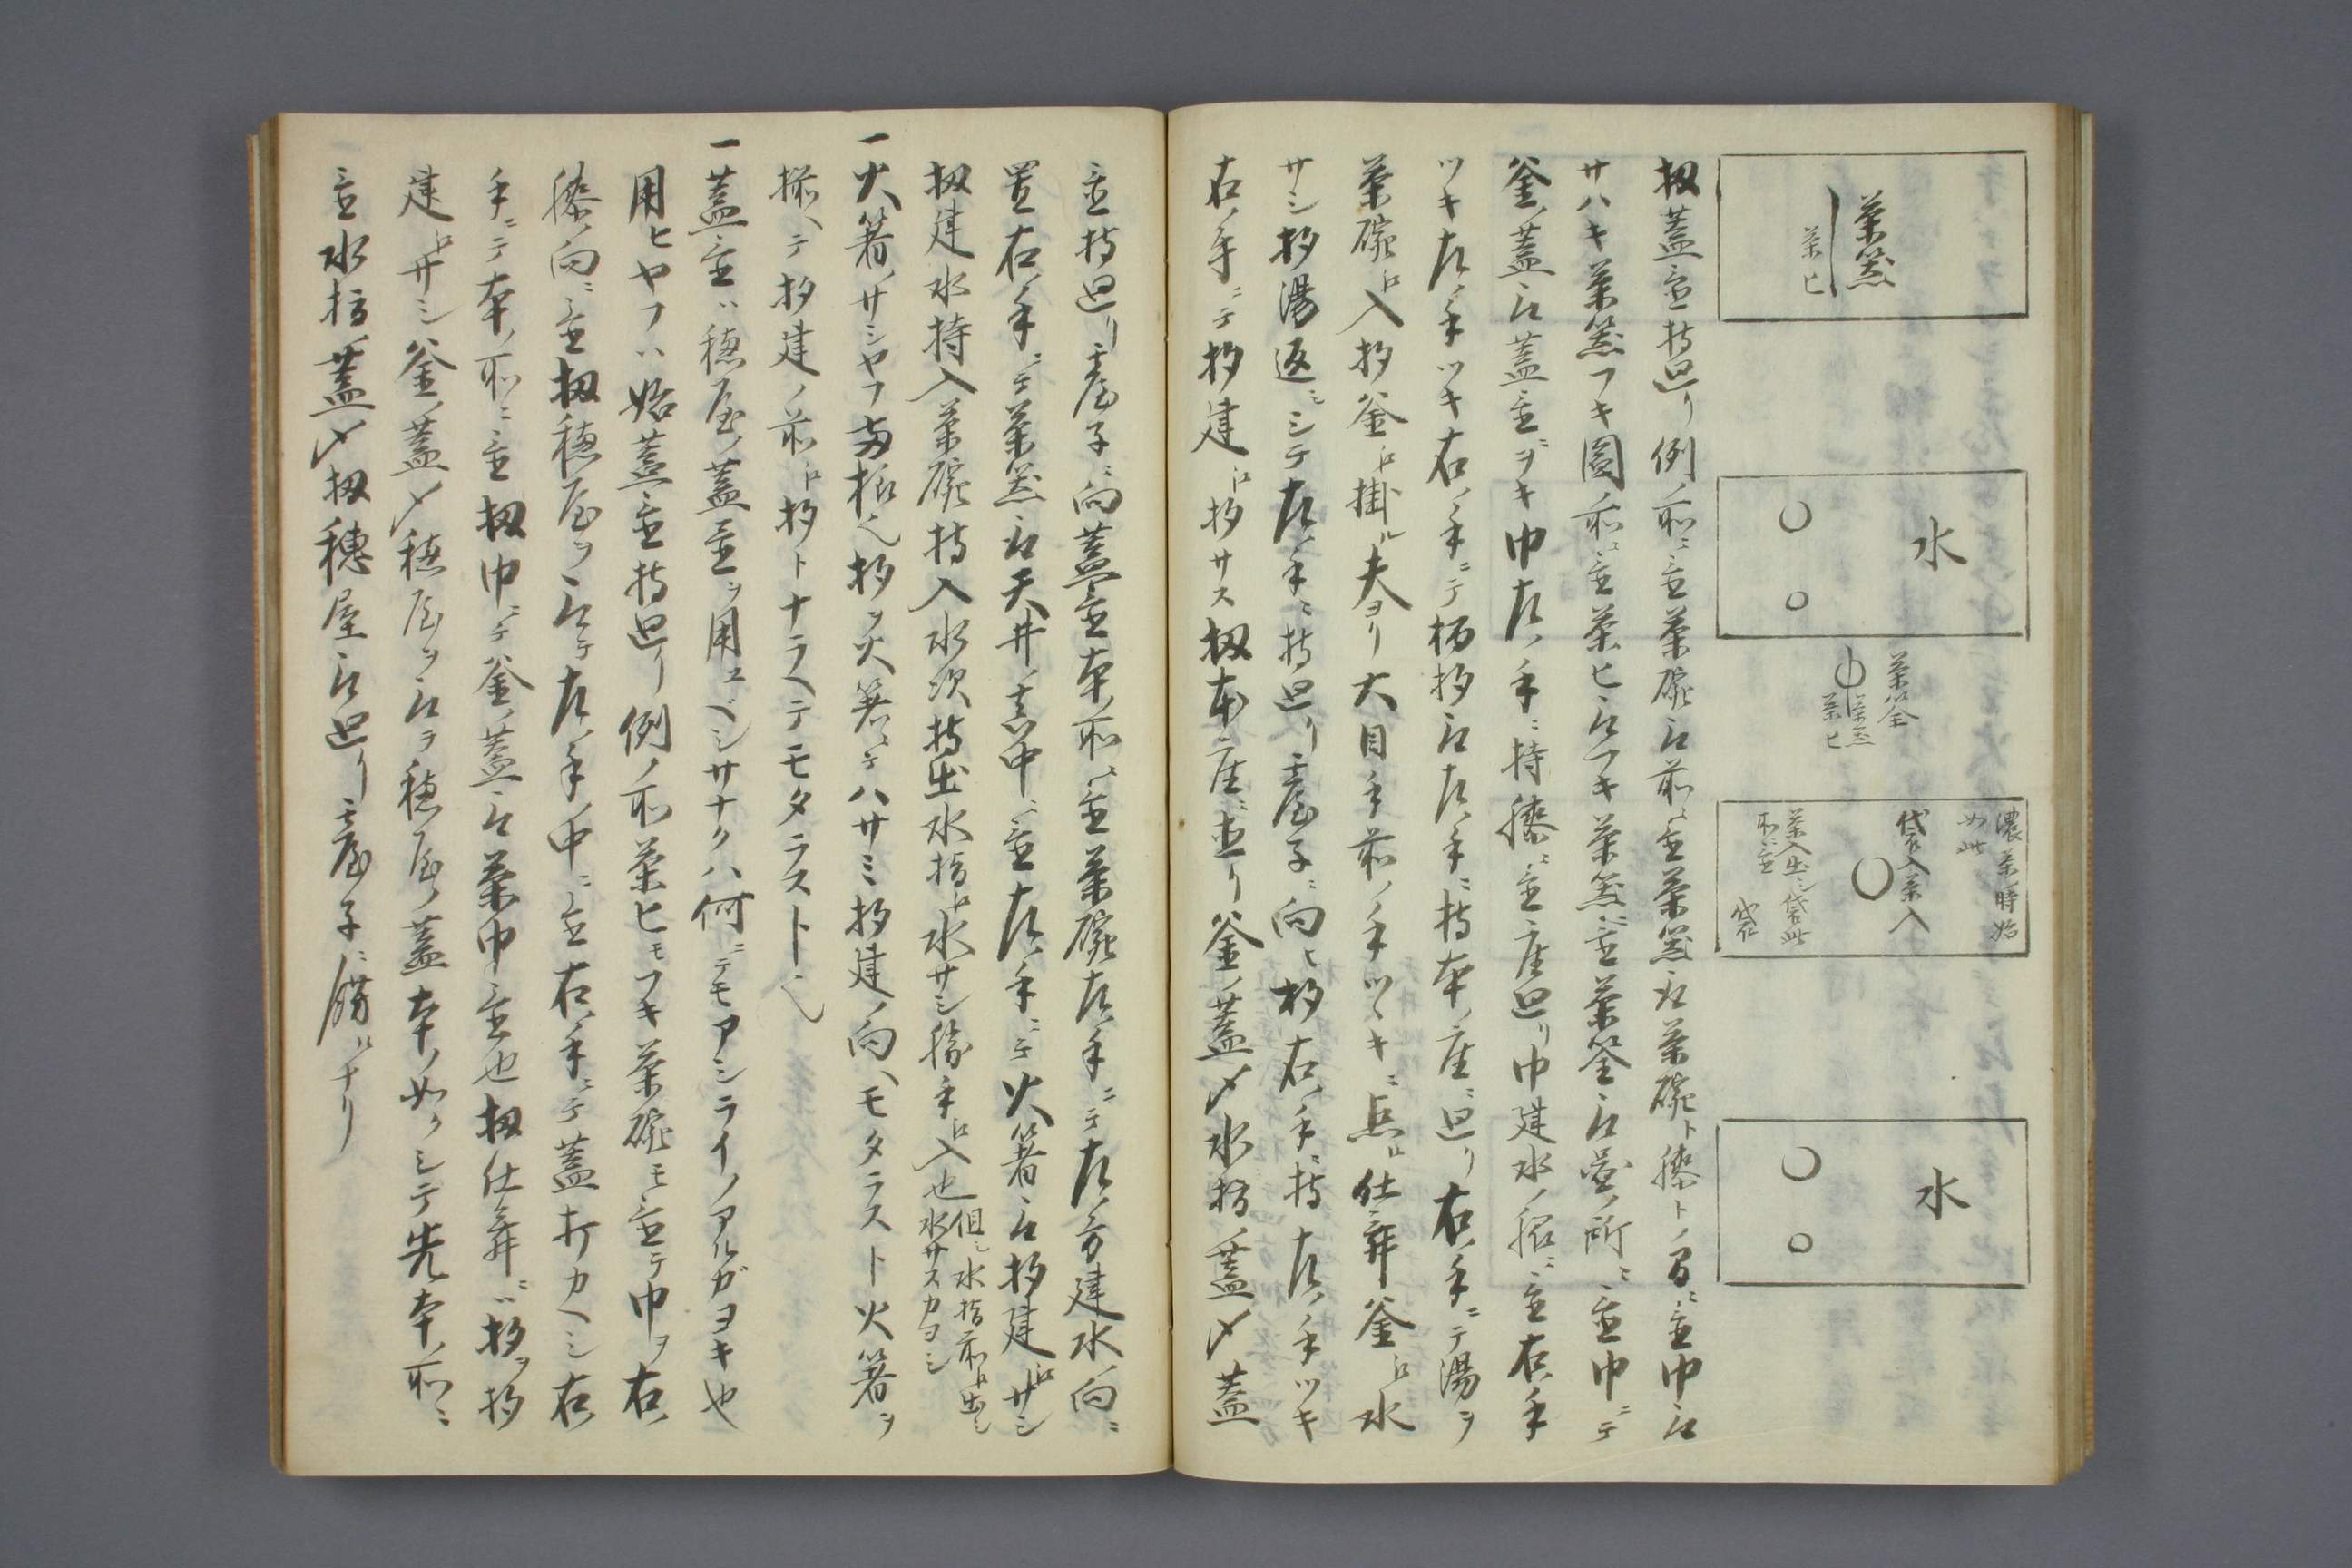 茶筅
茶ヒ
水
茶筌
茶筅
茶ヒ
濃茶時始
如此
袋入茶入
茶入出シ袋此
所ニ置
袋
水
扨蓋置持廻リ例ノ所ニ置茶碗取前ニ置茶筅取茶碗ト膝トノ間ニ置巾取
サハキ茶筅フキ圖ノ所ニ置茶ヒ取フキ茶筅ニ置茶筌取釜ノ所ニ置巾ニテ
釜ノ蓋取蓋置ニヲキ巾左ノ手ニ持膝ニ置座廻リ巾建水ノ脇ニ置右ノ手
ツキ左ノ手ツキ右ノ手ニテ柄杓取左ノ手ニ持本ノ座ニ廻リ右ノ手ニテ湯ヲ
茶碗ヘ入杓釜ヘ掛ル夫ヨリ大目手前ノ手ツヽキニ点ル仕舞釜ヘ水
サシ杓湯返ニシテ左ノ手ニ持廻リ臺子ニ向ヒ杓右ノ手ニ持左ノ手ツキ
右ノ手ニテ杓建ヘ杓サス扨本座ニ直リ釜ノ蓋〆水指ノ蓋〆蓋
置持廻リ臺子ニ向蓋置本ノ所ニ置茶碗左ノ手ニテ左ノ方建水ノ向ニ
置右ノ手ニテ茶筅取天井ノ真中ニ置左ノ手ニテ火箸取杓建ヘサシ
扨建水持入茶碗持入水次持出水指ヘ水サシ勝手ヘ入也
但シ水指前ヘ出シ
水サスカヨシ
一火箸ノサシヤフ両様也杓ヲ火箸ニテハサミ杓建ノ向ヘモタラスト火箸ヲ
揃ヘテ杓建ノ前ヘ杓トナラヘテモタラスト也
一蓋置ハ穂屋ノ蓋置ヲ用ユベシサナクハ何ニテモアシライノアルガヨキ也
用ヒヤフハ始蓋置持廻リ例ノ所茶ヒモフキ茶碗モ置テ巾ヲ右ノ
膝ノ向ニ置扨穂屋ヲ取テ左ノ手ノ中ニ置右ノ手ニテ蓋打カヘシ右ノ
手ニテ本ノ所ニ置扨巾ニテ釜ノ蓋取茶巾置也扨仕舞ニハ杓ヲ杓
建ヘサシ釜ノ蓋〆穂屋ヲ取ラ穂屋ノ蓋本ノ如クシテ先本ノ所ニ
置水指ノ蓋〆扨穂屋取廻リ臺子ニ餝ルナリ